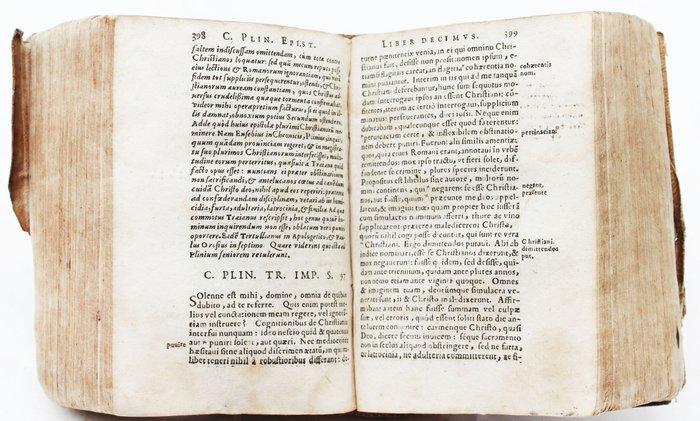 398 C. PLIN. EPIST.
saltem indiscussam omittendam, cum tota contra
Christianos loquatur: sed quũ mecum reputo posse
eius lectione & Romanorum ignorantiam, qui verã
fidem tot suppliciis persequerentur, ostendi, & Chri-
stianorum auream constantiam, quos Christus ad-
versus crudelissima quæque tormenta confirmabat,
videor mihi operæpretium facturus, si ei quod in
illis damnat, obnoxium potius Secundum ostendero.
Adde quòd huius epistolæ plurimi Christianorũ me-
minere. Nam Eusebius in Chronicis, Plinius, inquit,
quum quãdam prouinciam regeret, & in magistra-
tu suo plurimos Christianorum interfecisset, multi-
tudine eorum perterritus, quæsiuit à Traiano quid
facto opus esset: nuntians ei præter obstinationem
non sacrificandi, & antelucanos cœtus ad canendum
cuidã Christo deo, nihil apud eos reperiri: præterea
ad confœderandam disciplinam, vetari ab iis homi-
cidia, furta, adulteria, latrocinia, & similia. Ad quæ
commotus Traianus rescripsit, hoc genus quidem ho-
minum inquirendum non esse, oblatum verò puniri
oportere. Eadẽ Tertullianus in Apologetico, & Pau-
lus Orosius in septimo. Quare viderint qui ista à
Plinium seniorem retulerunt.
C. PLIN. TR. IMP. S. 97
Solenne est mihi, domine, omnia de quibus
dubito, ad te referre. Quis enim potest me-
lius vel cunctationem meam regere, vel ignorã-
tiam instruere? Cognitionibus de Christianis
interfui nunquam: ideo nescio quid & quatenus
punire aut * puniri soleat, aut quæri. Nec mediocriter
hæsitaui sitne aliquod discrimen ætatũ, an quam-
libet teneri nihil à robustioribus differant: de-
LIBER DECIMVS. 399
turne pœnitentiæ venia, an ei qui omnino Chri-
stianus fuit, desisse non prosit: nomen ipsum, e-
tiamsi flagitiis careat, an flagitia * cohærentia no- cohærentia
mini puniantur. Interim in iis qui ad me tanquã nom.
Christiani deferebantur, hunc sum sequutus mo-
dum: interrogaui ipsos an essent Christiani: cõ-
fitentes, iterum ac tertiò interrogaui, supplicium
minatus: perseuerantes, duci iussi. Neque enim
dubitabam, qualecunque esset quod faterentur:
* peruicaciam certe, & inflexibilem obstinatio- pertinaciam
nem debere puniri. Fuerunt alii similis amentiæ:
quos, quia ciues Romani erant, annotaui in vrbẽ
remittendos: mox ipso tractu, vt fieri solet, dif-
fundente se crimine, plures species inciderunt.
Propositus est libellus sine autore, multorũ no-
mina continens, qui * negarent se esse Christia- negent,
nos, aut fuisse, quum * præeunte me deos appel- præsente
larent, & imagini tuæ quam propter hoc iusserã
cum simulacris numinum afferri, thure ac vino
supplicarent: præterea maledicerent Christo,
quorũ nihil cogi posse dicuntur, qui sunt re vera
* Christiani. Ergo dimittendos putaui. Alii ab Christiani,
indice nominati, esse se Christianos dixerunt, & dimittendos
mox negauerunt: fuisse quidem, sed desisse, qui- put.
dam ante triennium, quidam ante plures annos,
non nemo etiam ante viginti quoque. Omnes
& imaginem tuam, deorúmque simulacra vene-
rati sunt, ii & Christo maledixerunt. Affir-
mabant autem hanc fuisse summam vel culpæ
suæ, vel erroris, quòd essent soliti stato die ante
lucem conuenire: carménque Christo, quasi
Deo, dicere secum inuicem: séque sacramento
non in scelus aliquod obstringere, sed ne furta,
ne latrocinia, ne adulteria committerent, ne fi-